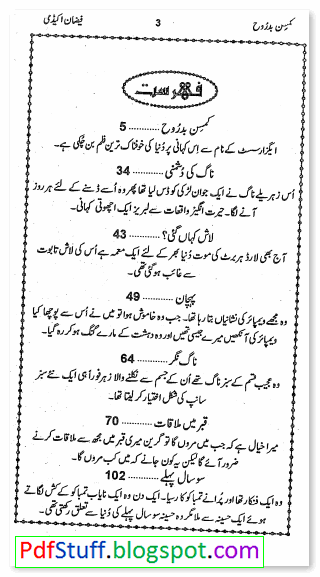 کمسِن بدرُوح 3 فیضان اکیڈمی
فہرست
کمسِن بدرُوح ............ 5
ایگزارسسٹ کے نام سے اِس کہانی پر دُنیا کی خوفناک ترین فلم بن چکی ہے۔
ناگ کی دُشمنی ............ 34
اُس زہریلے ناگ نے ایک جوان لڑکی کو ڈس لیا تھا پھر وہ اُسے ڈسنے کے لئے ہر روز
آنے لگا۔ حیرت انگیز واقعات سے لبریز ایک اچھوتی کہانی۔
لاش کہاں گئی؟ ............ 43
آج بھی لارڈ ہربرٹ کی موت دُنیا بھر کے لئے ایک معمہ ہے اُس کی لاش تابوت
سے غائب ہو گئی تھی۔
پہچان ............ 49
وہ مجھے ویمپائر کی نشانیاں بتا رہا تھا۔ جب وہ خاموش ہوا تو میں نے اُس سے پوچھا کیا
ویمپائر کی آنکھیں میرے جیسی تھیں اور وہ دہشت کے مارے گنگ ہو کر رہ گیا۔
ناگ نگر ............ 64
وہ عجیب قسم کے سبز ناگ تھے اُن کے جسم سے نکلنے والا زہر فوراً ہی ایک نئے سبز
سانپ کی شکل اختیار کر لیتا تھا۔
قبر میں ملاقات ............ 70
میرا خیال ہے کہ جب میں مروں گا تو گرین میری قبر میں مجھ سے ملاقات کرنے
ضرور آئے گا لیکن یہ کون جانے کہ میں کب مروں گا۔
سو سال پہلے ............ 102
وہ ایک فنکار تھا اور پُرانے تمباکو کا رسیا۔ ایک دن وہ ایک نایاب تمباکو کے کش لگاتے
ہوئے ایک حسینہ سے ملا مگر وہ حسینہ سو سال پہلے کی دُنیا سے تعلق رکھتی تھی۔
PdfStuff.blogspot.com